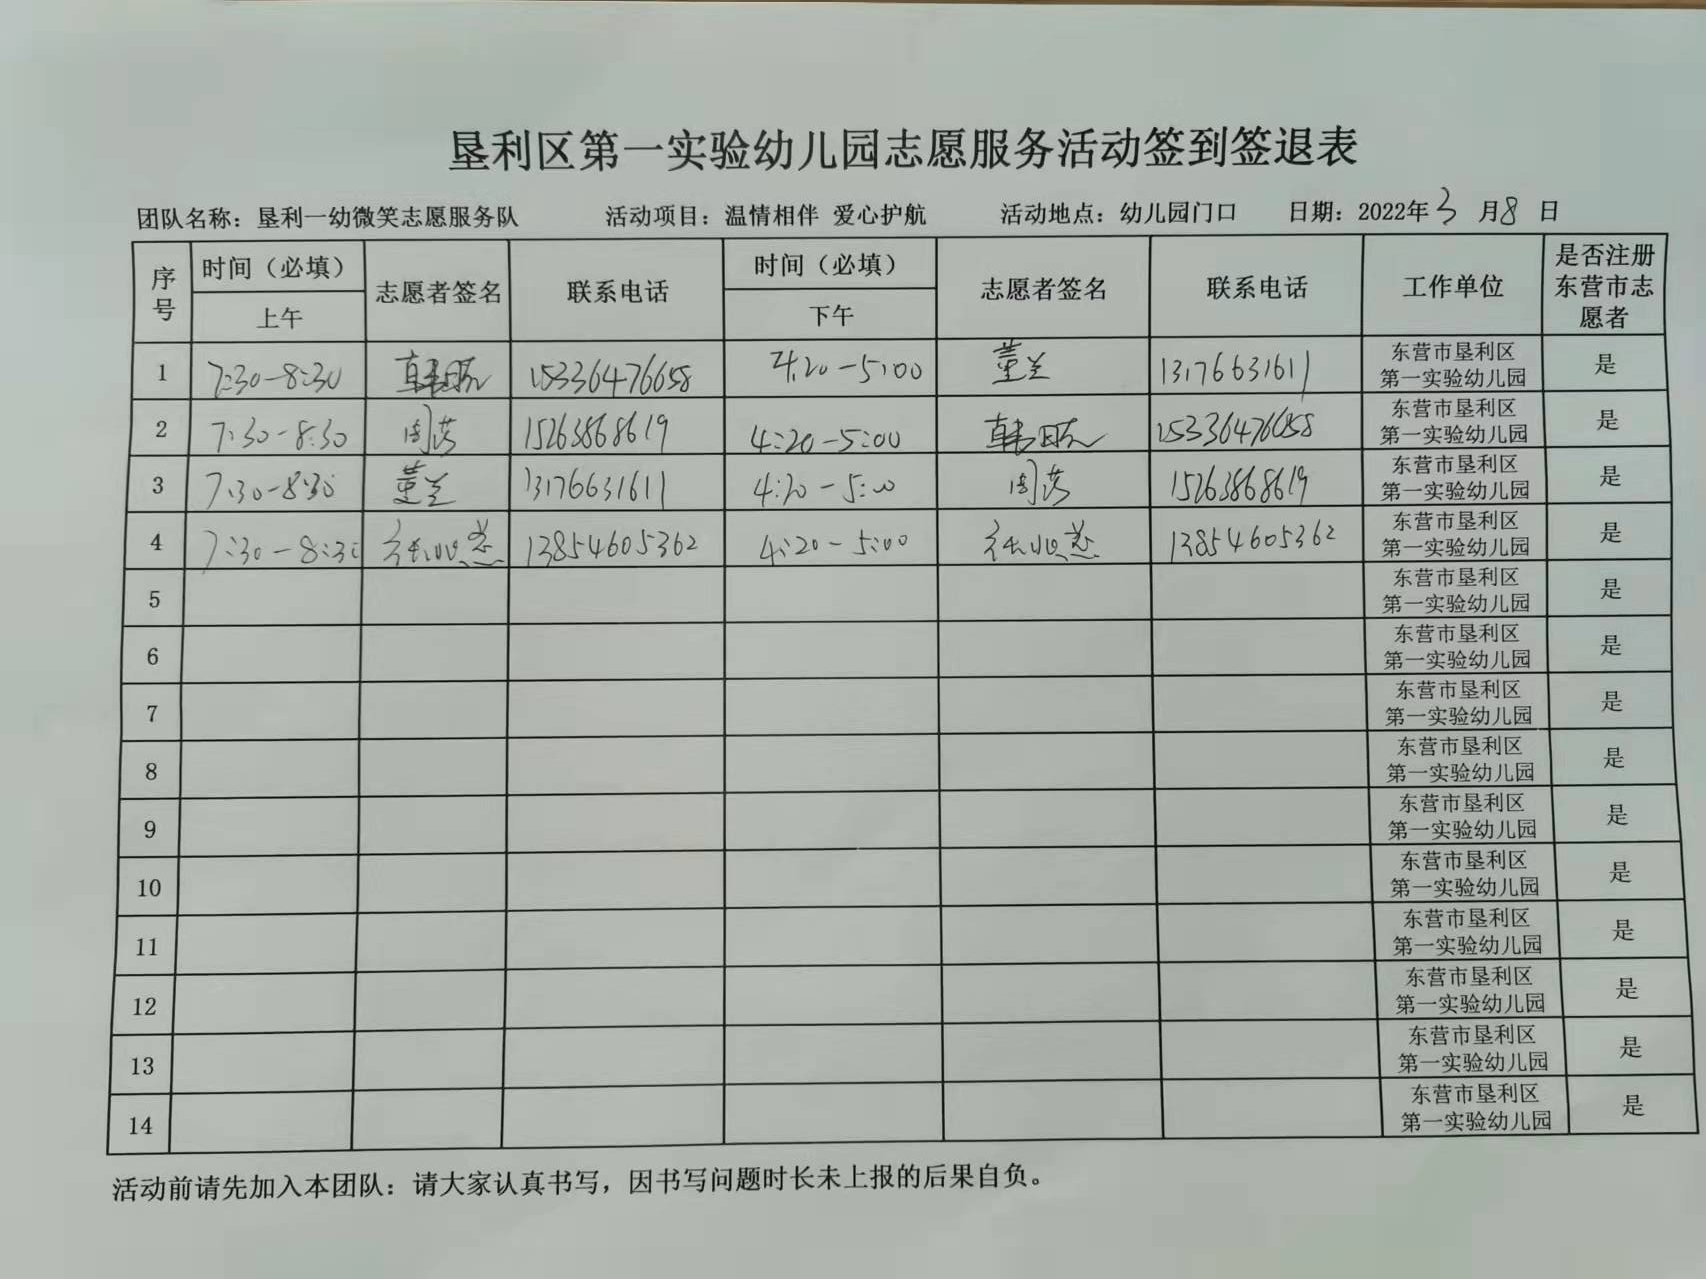 垦利区第一实验幼儿园志愿服务活动签到签退表
团队名称：垦利一幼微笑志愿服务队 活动项目：温情相伴 爱心护航 活动地点：幼儿园门口 日期：2022年3月8日
序号 时间（必填） 上午 志愿者签名 联系电话 时间（必填） 下午 志愿者签名 联系电话 工作单位 是否注册东营市志愿者
1 7:30-8:30 15336476658 4:20-5:00 董兰 13176631611 东营市垦利区第一实验幼儿园 是
2 7:30-8:30 15263868619 4:20-5:00 15336476658 东营市垦利区第一实验幼儿园 是
3 7:30-8:30 董兰 13176631611 4:20-5:00 15263868619 东营市垦利区第一实验幼儿园 是
4 7:30-8:30 13854605362 4:20-5:00 13854605362 东营市垦利区第一实验幼儿园 是
5 东营市垦利区第一实验幼儿园 是
6 东营市垦利区第一实验幼儿园 是
7 东营市垦利区第一实验幼儿园 是
8 东营市垦利区第一实验幼儿园 是
9 东营市垦利区第一实验幼儿园 是
10 东营市垦利区第一实验幼儿园 是
11 东营市垦利区第一实验幼儿园 是
12 东营市垦利区第一实验幼儿园 是
13 东营市垦利区第一实验幼儿园 是
14 东营市垦利区第一实验幼儿园 是
活动前请先加入本团队：请大家认真书写，因书写问题时长未上报的后果自负。